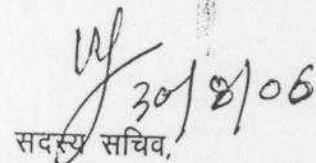 30/8/06
सदस्य सचिव,